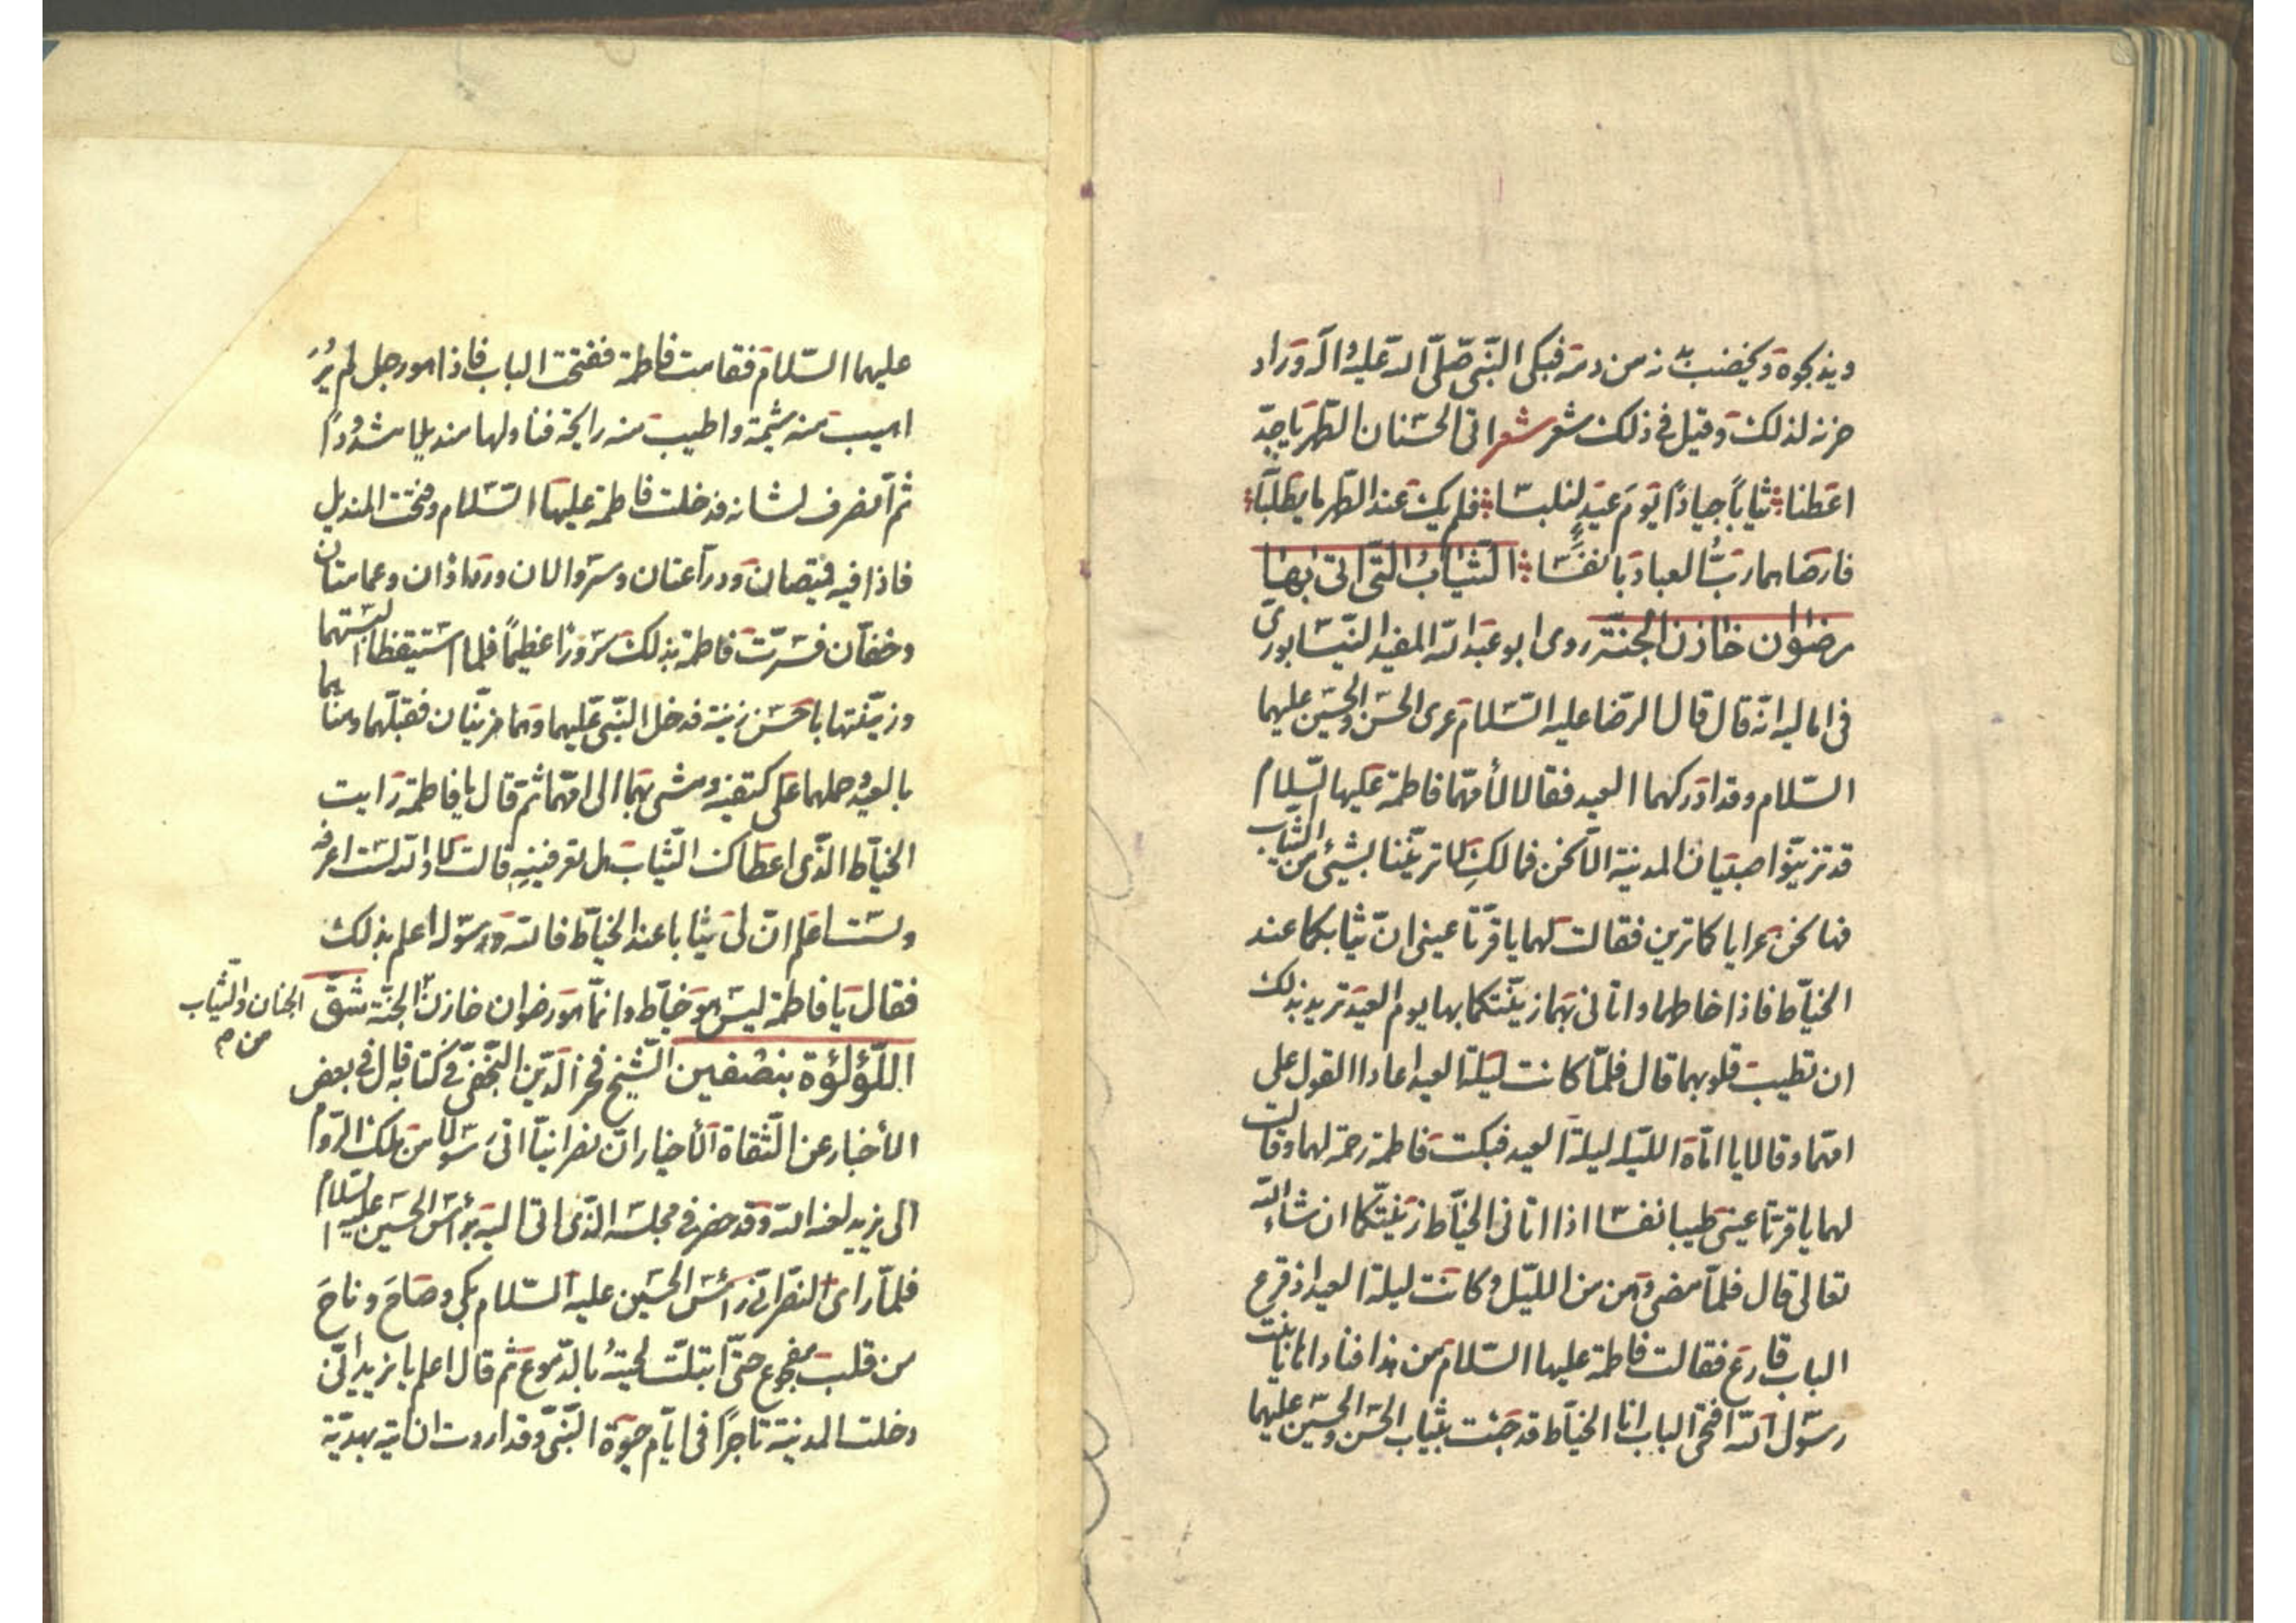 ويذبحوه ويخضب بدنه من دمه فبكى النبى صلى الله عليه واله وزاد
حزنه لذلك وقيل فى ذلك شعر شعر اتى الحسنان الطهر يا جد
اعطنا ثيابا جيادا يوم عيد لنلبسا فلم يك عند الطهر ما يطلبانه
فارضاهما رب العباد بانفسا الثياب التى اتى بها
رضوان خازن الجنة روى ابو عبد الله المفيد النيسابورى
فى اماليه انه قال قال الرضا عليه السلام عرى الحسن والحسين عليهما
السلام وقد ادركهما العيد فقالا لأمهما فاطمة عليها السلام
قد تزينوا صبيان المدينة الا نحن فمالك لا تزيننا بشئ من الثياب
فها نحن عرايا كما ترين فقالت لهما يا قرتا عينى ان ثيابكما عند
الخياط فاذا خاطهما واتانى بهما زينتكما بها يوم العيد تريد بذلك
ان تطيب قلوبهما قال فلما كانت ليلة العيد اعادا القول على
امهما وقالا يا اماه الليلة ليلة العيد فبكت فاطمة رحمة لهما وقالت
لهما يا قرتا عينى طيبا نفسا اذا اتانى الخياط زينتكما ان شاء الله
تعالى قال فلما مضى وهن من الليل وكانت ليلة العيد اذ قرع
الباب قارع فقالت فاطمة عليها السلام من هذا فنادا يا بنت
رسول الله افتحى الباب انا الخياط قد جئت بثياب الحسن والحسين عليهما
عليهما السلام فقامت فاطمة ففتحت الباب فاذا هو رجل لم ير
اهيب منه شيمة واطيب منه رايحة فناولها منديلا مشدودا
ثم انصرف لشانه فدخلت فاطمة عليها السلام وفتحت المنديل
فاذا فيه قميصان ودراعتان وسروالان ورداوان وعمامتان
وخفان فسرت فاطمة بذلك سرورا عظيما فلما استيقظا البستهما
وزينتهما باحسن زينة فدخل النبى عليهما وهما مزينان فقبلهما وهناهما
بالعيد وحملهما على كتفيه ومشى بهما الى امهما ثم قال يا فاطمة رايت
الخياط الذى اعطاك الثياب هل تعرفينه قالت لا والله لست اعرفه
ولست اعلم ان لى ثيابا عند الخياط فالله ورسوله اعلم بذلك
فقال يا فاطمة ليس هو خياط وانما هو رضوان خازن الجنة شق
الجنان والثياب
من م
اللؤلؤة بنصفين الشيخ فخر الدين النجفى فى كتابه قال فى بعض
الأخبار عن الثقاة الأخيار ان نصرانيا اتى رسولا من ملك الروم
الى يزيد لعنه الله وقد حضر فى مجلسه الذى اتى اليه برأس الحسين عليه السلام
فلما راى النصرانى رأس الحسين عليه السلام بكى وصاح وناح
من قلب مفجوع حتى ابتلت لحيته بالدموع ثم قال اعلم يا يزيد انى
دخلت المدينة تاجرا فى ايام حيوة النبى وقد اردت ان اتيه بهدية